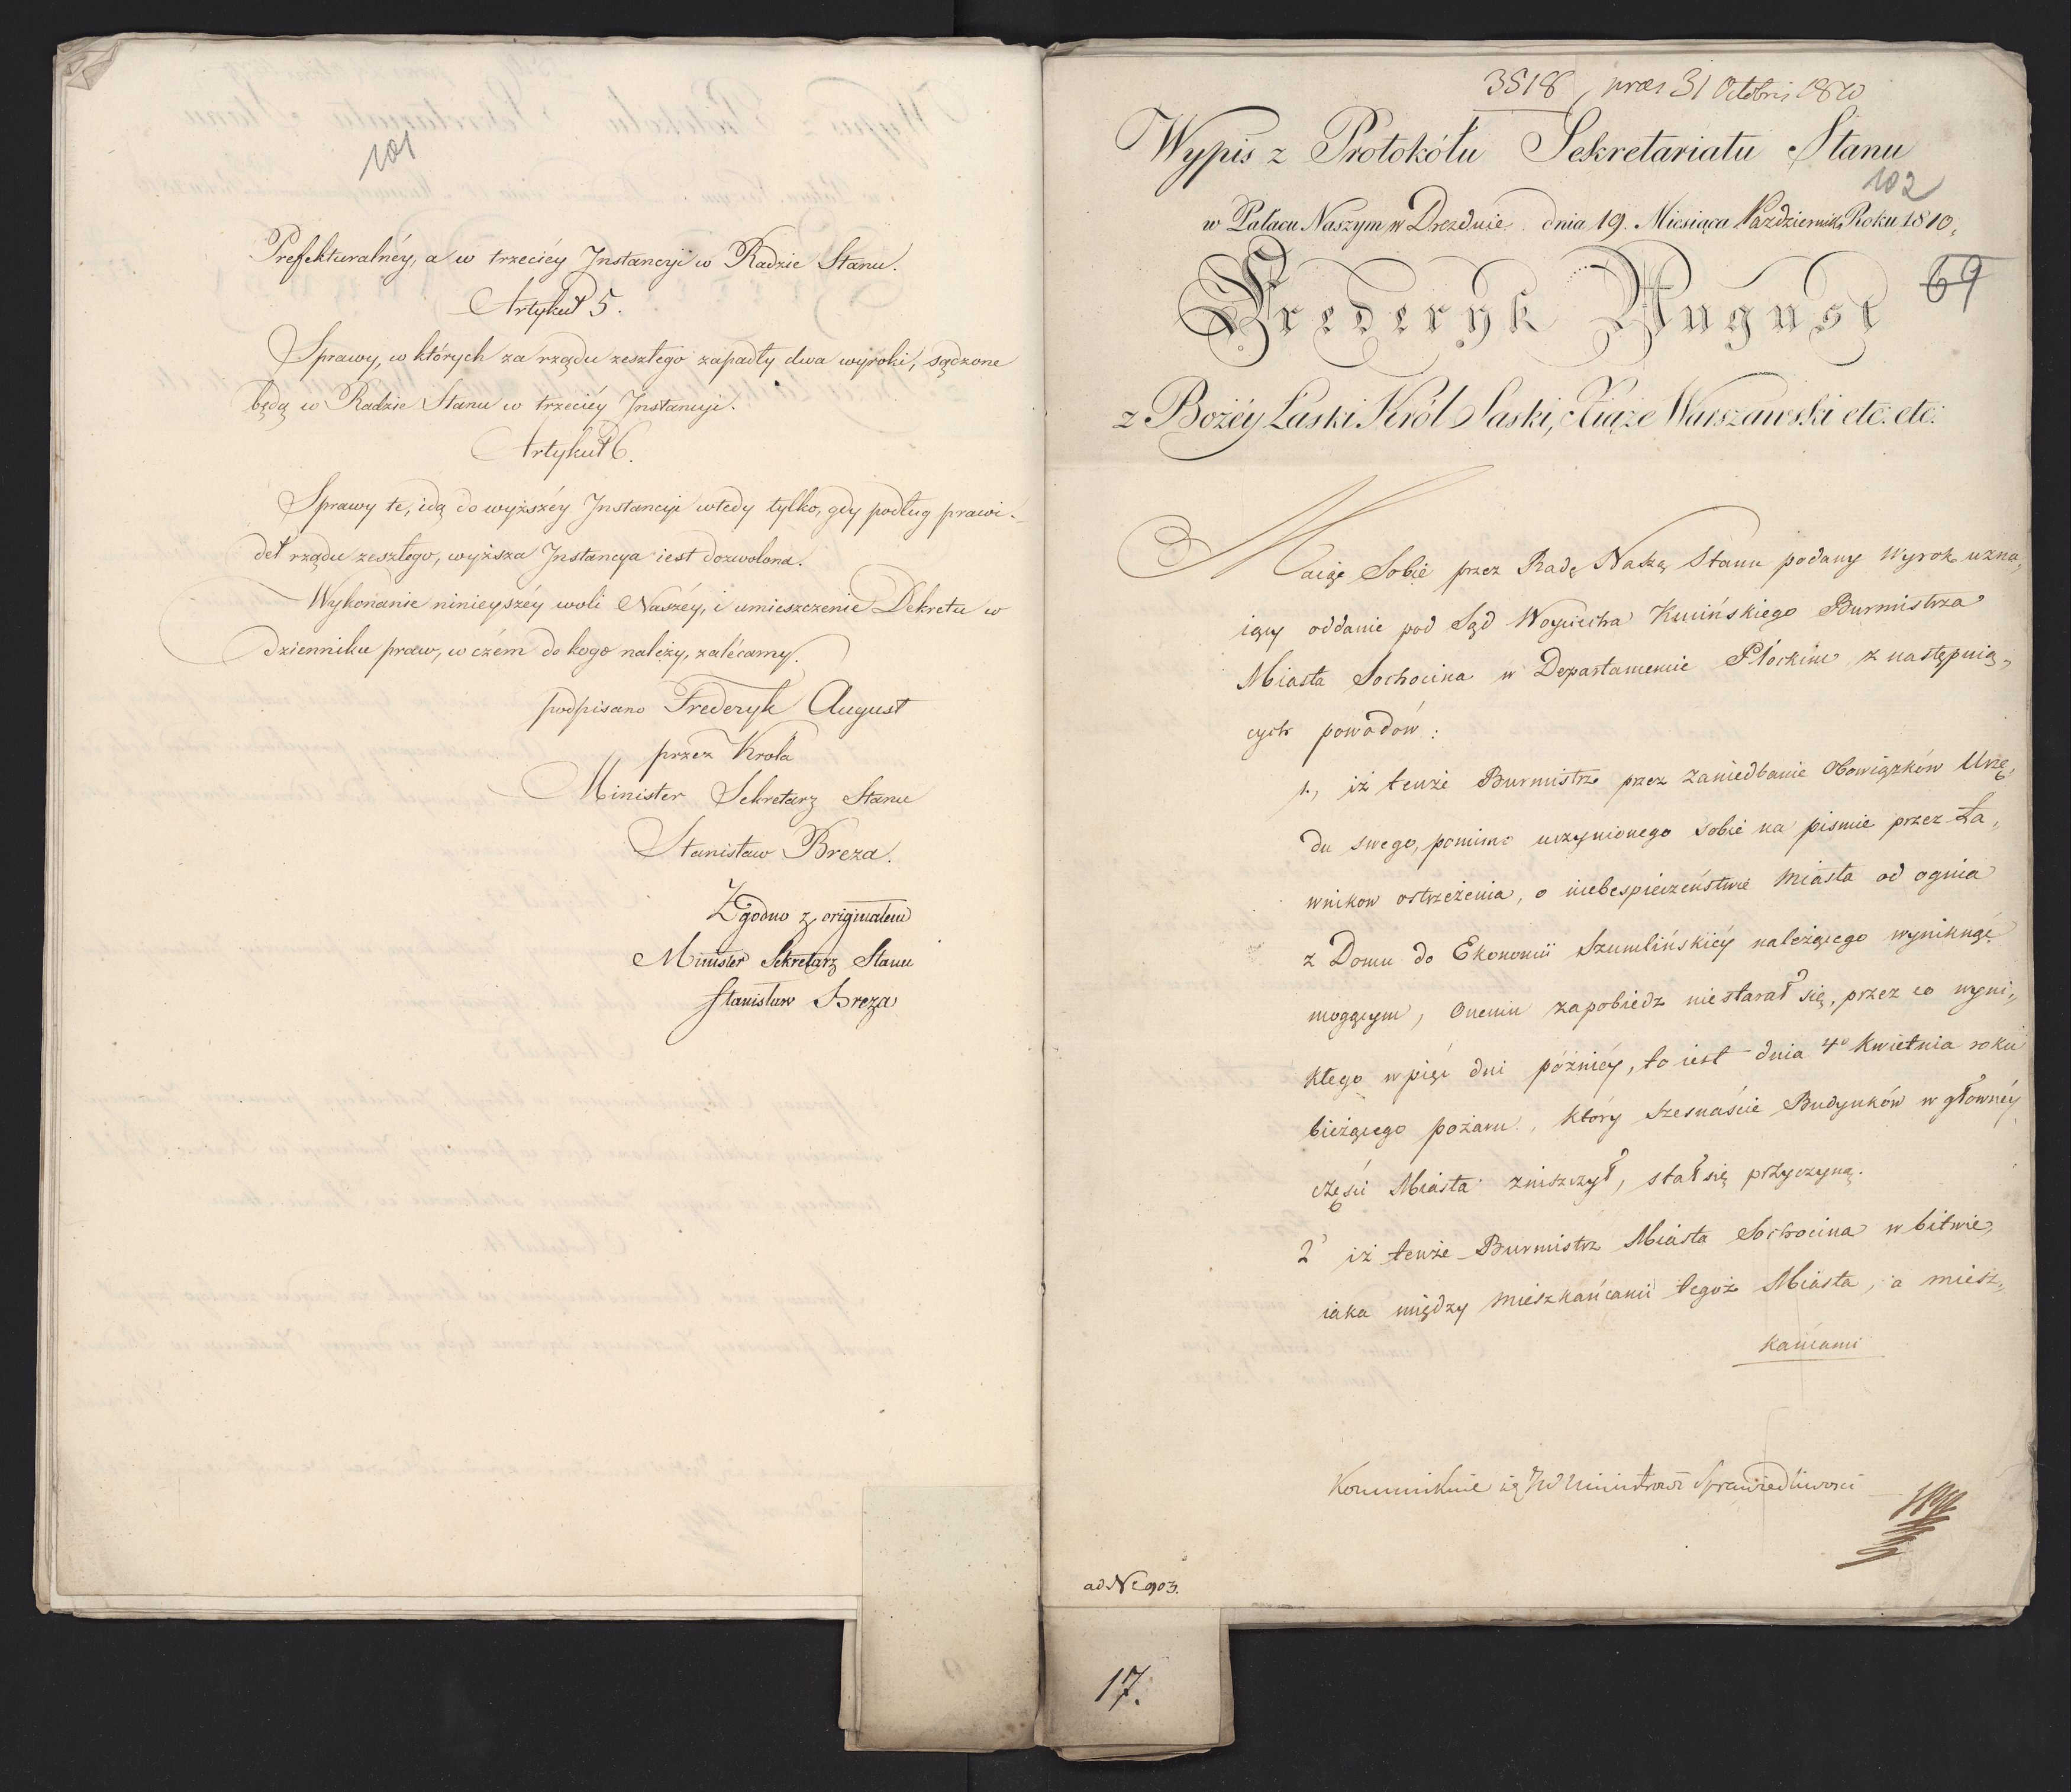 101
Prefekturalnéy, a w trzeciéy Instancyi w Radzie Stanu.
Artykuł 5.
Sprawy, w których za rządu zeszłego zapadły dwa wyroki, sądzone
będą w Radzie Stanu w trzeciéy Instancyi.
Artykuł 6.
Sprawy te, idą do wyższéy Instancyi wtedy tylko, gdy podług prawi-
deł rządu zeszłego, wyższa Instancya iest dozwolona.
Wykonanie ninieyszéy woli Naszéy, i umieszczenie Dekretu w
dzienniku praw, w czém do kogo należy, zalécamy.
podpisano Frederyk August
przez Króla
Minister Sekretarz Stanu
Stanisław Breza.
Zgodno z originałem
Minister Sekretarz Stanu
Stanisław Breza
3518 praes 31 Octobris 1810
Wypis z Protokółu Sekretariatu Stanu
102
w Pałacu Naszym w Dreznie dnia 19. Miesiąca Październik Roku 1810.
Frederyk August
69
z Bożéy Łaski Król Saski, Xiąże Warszawski etc: etc:
Maiąc Sobie przez Radę Naszą Stanu podany Wyrok uzna,
iący oddanie pod Sąd Woyciecha Kucińskiego Burmistrza
Miasta Sochocina w Departamencie Płockim z następuią,
cych powodów:
1., iż tenże Burmistrz przez zaniedbanie Obowiązków Urzę,
du swego, pomimo uczynionego sobie na pismie przez Ła,
wnikow ostrzeżenia, o niebespieczeństwie Miasta od ognia
z Domu do Ekonomii Szumlińskiéy należącego wyniknąć
mogącym, Onemu zapobiedz niestarał się, przez co wyni,
kłego w pięć dni późniéy, to iest dnia 4º Kwietnia roku
bieżącego pożaru, który szesnaście Budynków w główney
części Miasta zniszczył, stał się przyczyną.
2º iż tenże Burmistrz Miasta Sochocina w bitwie,
iaka między Mieszkańcami tegoż Miasta, a miesz,
kańcami
Kommunikuie się JW Ministrowi Sprawiedliwosci
ad Nº 903.
17.